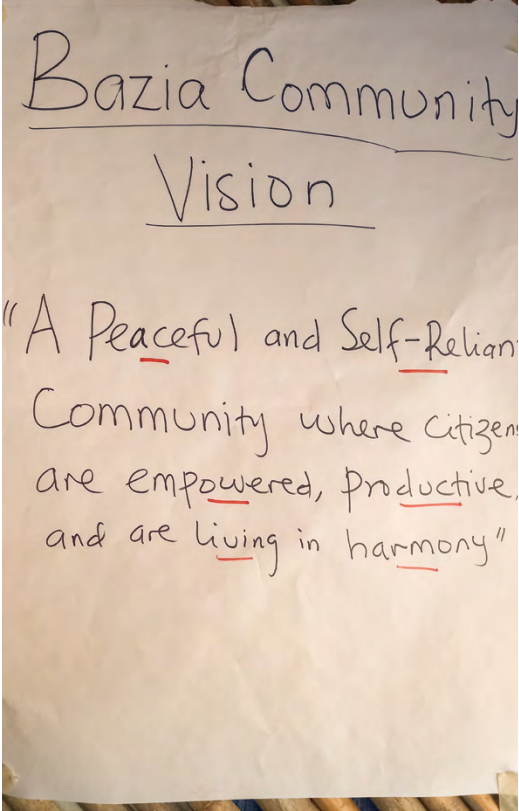 Bazia Community
Vision
"A Peaceful and Self-Relian
Community where citizens
are empowered, productive,
and are living in harmony"